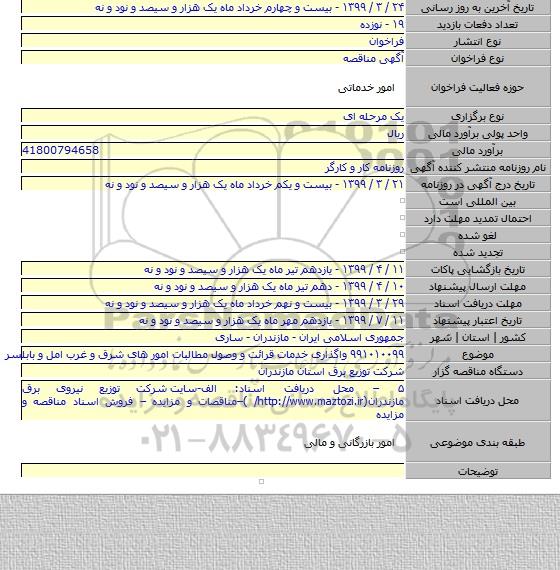 تاریخ آخرین به روز رسانی ۲۴ / ۳ / ۱۳۹۹ - بیست و چهارم خرداد ماه یک هزار و سیصد و نود و نه
تعداد دفعات بازدید ۱۹ - نوزده
نوع انتشار فراخوان
نوع فراخوان آگهی مناقصه
حوزه فعالیت فراخوان امور خدماتی
نوع برگزاری یک مرحله ای
واحد پولی برآورد مالی ریال
برآورد مالی 41800794658
نام روزنامه منتشر کننده آگهی روزنامه کار و کارگر
تاریخ درج آگهی در روزنامه ۲۱ / ۳ / ۱۳۹۹ - بیست و یکم خرداد ماه یک هزار و سیصد و نود و نه
بین المللی است
احتمال تمدید مهلت دارد
لغو شده
تجدید شده
تاریخ بازگشایی پاکات ۱۱ / ۴ / ۱۳۹۹ - یازدهم تیر ماه یک هزار و سیصد و نود و نه
مهلت ارسال پیشنهاد ۱۰ / ۴ / ۱۳۹۹ - دهم تیر ماه یک هزار و سیصد و نود و نه
مهلت دریافت اسناد ۲۹ / ۳ / ۱۳۹۹ - بیست و نهم خرداد ماه یک هزار و سیصد و نود و نه
تاریخ اعتبار پیشنهاد ۱۱ / ۷ / ۱۳۹۹ - یازدهم مهر ماه یک هزار و سیصد و نود و نه
کشور | استان | شهر جمهوری اسلامی ایران - مازندران - ساری
موضوع ۹۹۱۰۱۰۰۹۹ واگذاری خدمات قرائت و وصول مطالبات امور های شرق و غرب امل و بابلسر
دستگاه مناقصه گزار شرکت توزیع برق استان مازندران
محل دریافت اسناد ۵ – محل دریافت اسناد: الف-سایت شرکت توزیع نیروی برق
مازندران(http://www.maztozi.ir/ )–مناقصات و مزایده – فروش اسناد مناقصه و
مزایده
طبقه بندی موضوعی امور بازرگانی و مالی
توضیحات
۰۲۱-۸۸۳۴۹۶۷۰-۵